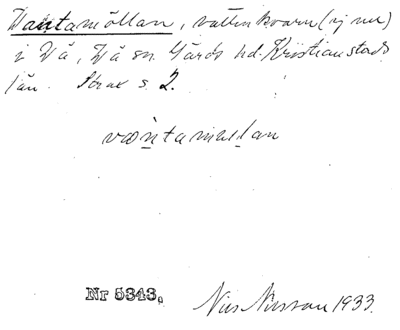 Wantamöllan, vattenkvarn (ej nu)
i Vä, Vä sn. Gärds hd. Kristianstads
län. Strax s. 2.
væntamulan
Nr 5343.
Nils Nilsson 1933.